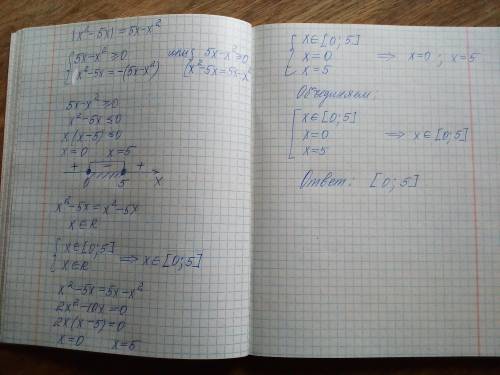 |x²-5x|=5x-x²
{ 5x-x²≥0 или { 5x-x²≥0
{ x²-5x=-(5x-x²) { x²-5x=5x-x²
5x-x²≥0
x²-5x≤0
x(x-5)≤0
x=0 x=5
+ - +
0 5 x
x²-5x=x²-5x
x∈R
{ x∈[0;5]
{ x∈R ⟹ x∈[0;5]
x²-5x=5x-x²
2x²-10x=0
2x(x-5)=0
x=0 x=5
{ x∈[0;5]
{ x=0 ⟹ x=0; x=5
{ x=5
Объединяем:
[ x∈[0;5]
[ x=0 ⟹ x∈[0;5]
[ x=5
Ответ: [0;5]